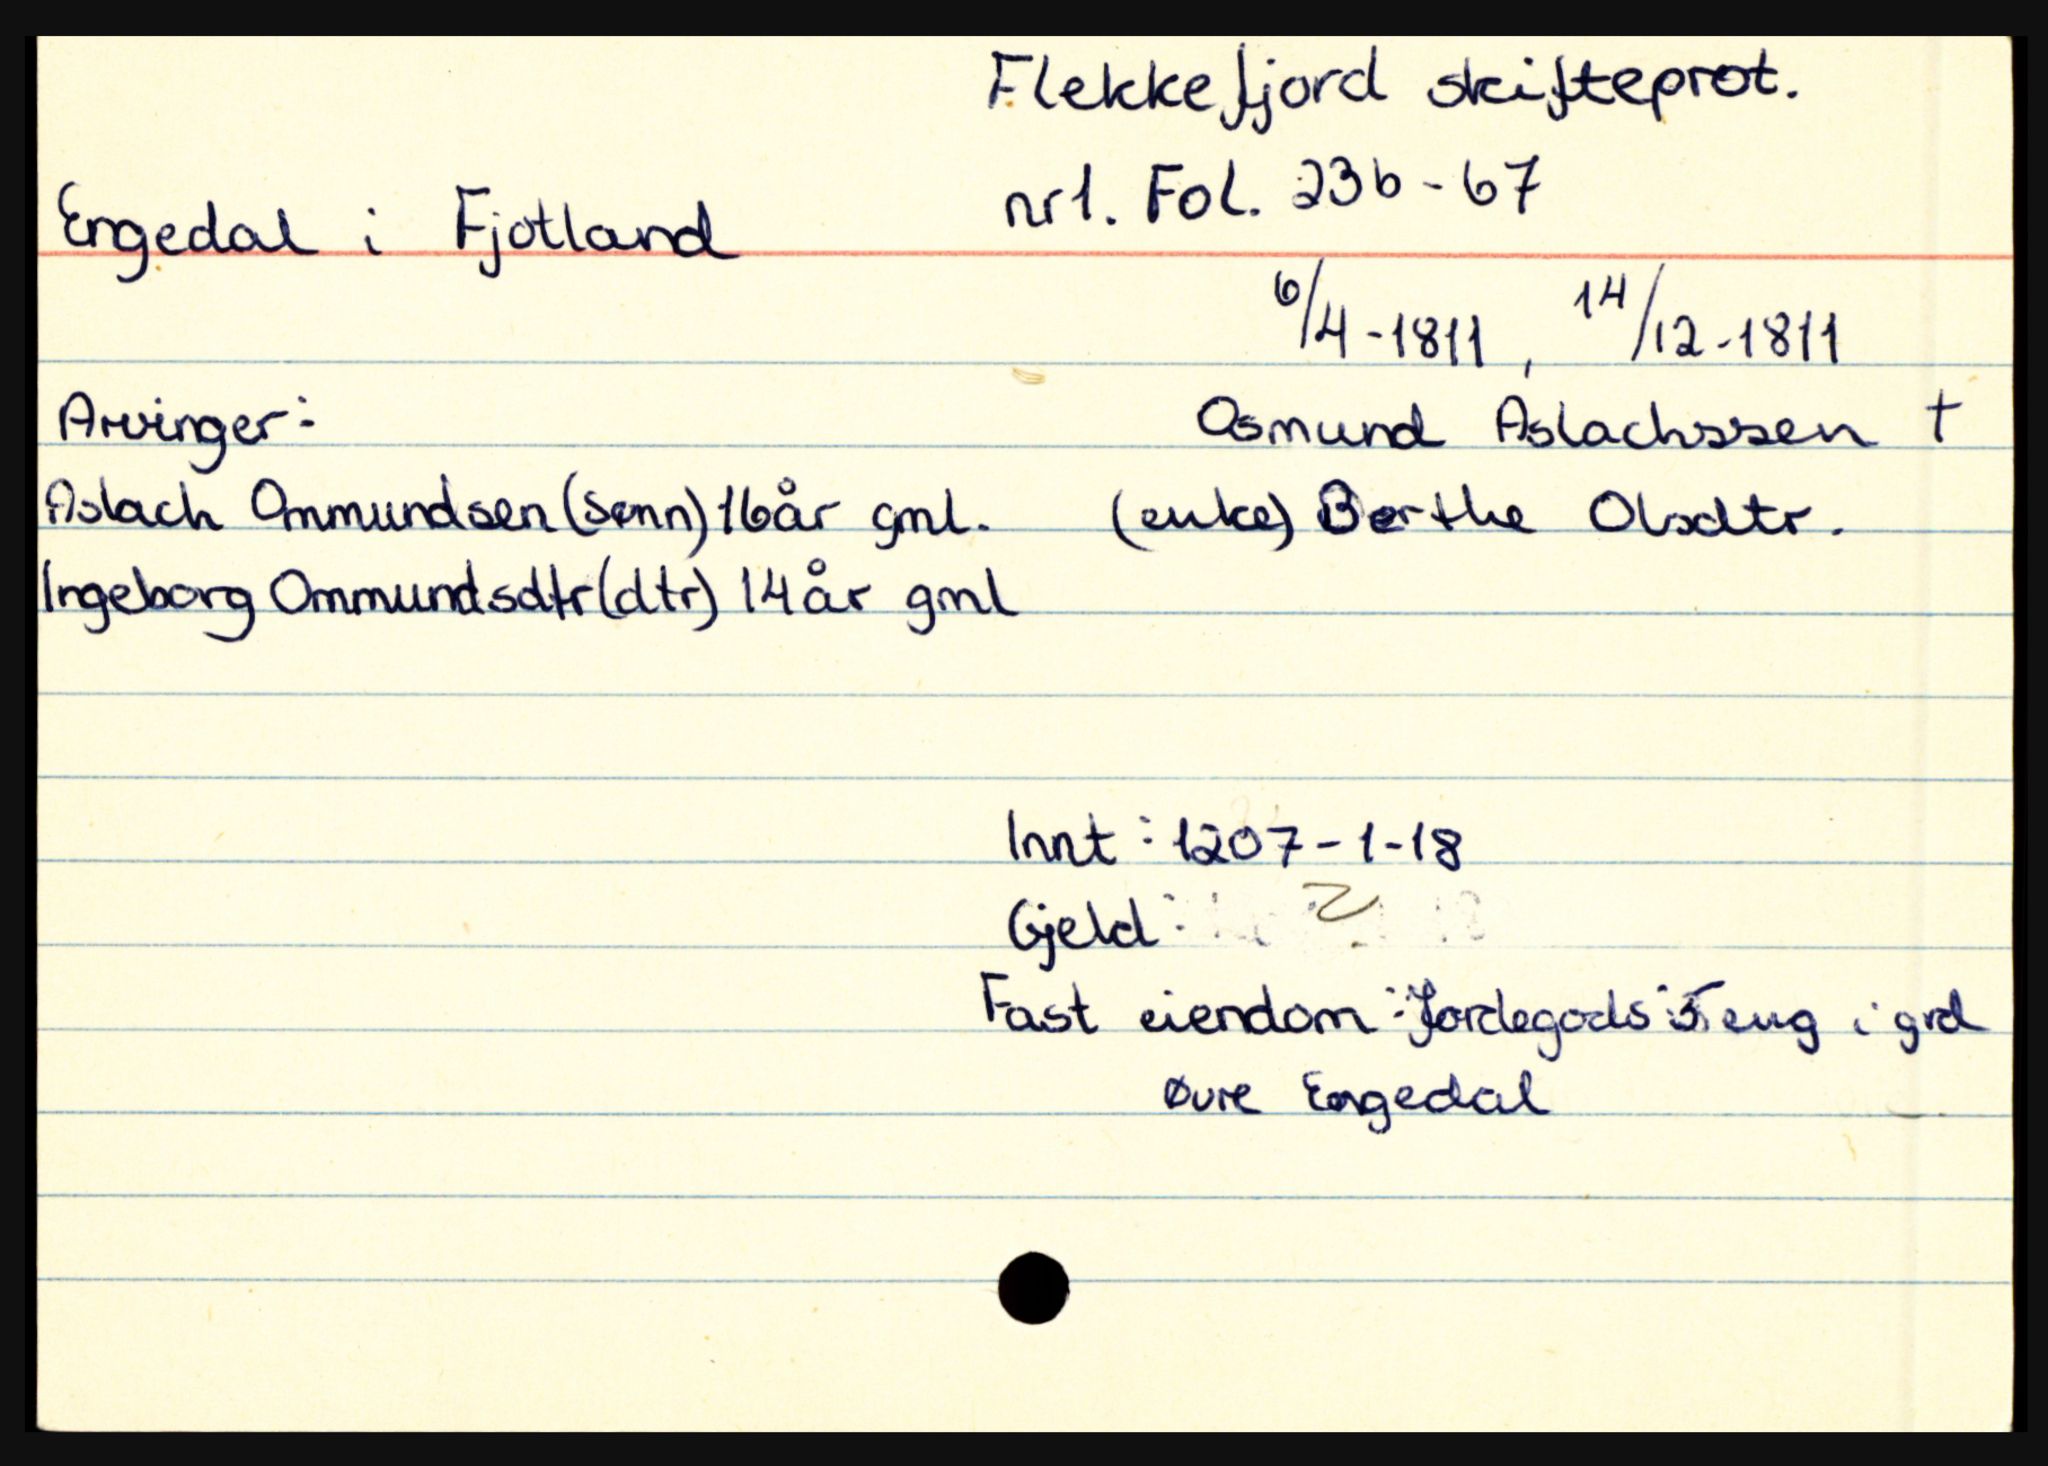 Flekkefjord skifteprot.
nr1. Fol. 23b - 67
Engedal i Fjotland
6/4-1811, 14/12-1811
Arvinger:
Osmund Aslachssen †
Aslach Ommundsen (sønn) 16 år gml.
(enke) Berthe Olsdtr.
Ingeborg Ommundsdtr (dtr) 14 år gml
Innt: 1207-1-18
Gjeld:
Fast eiendom: Jordegods: i grd
Øvre Engedal